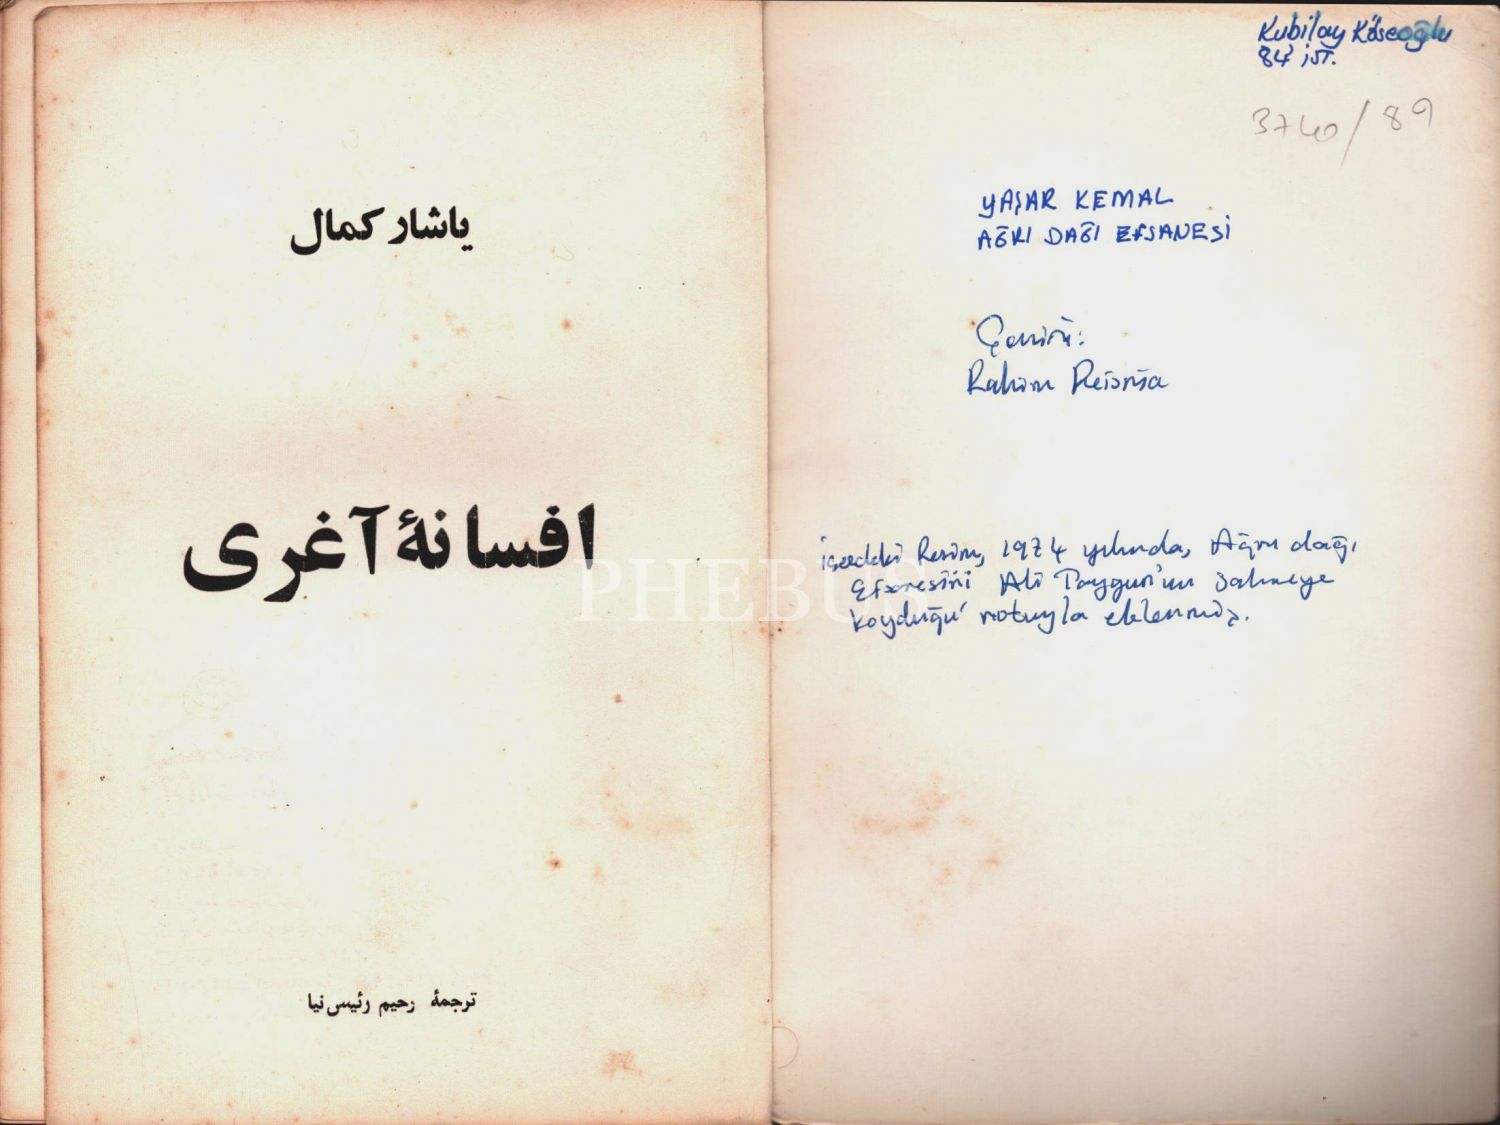 یاشار کمال
افسانهٔ آغری
ترجمهٔ رحیم رئیس‌نیا
PHEBUS
Kubilay Köseoğlu
84 İST.
3740/89
YAŞAR KEMAL
AĞRI DAĞI EFSANESİ
Çeviri:
Rahim Reisnia
içerdeki Resim, 1974 yılında, Ağrı dağı
Efsanesini Ali Taygun'un sahneye
koyduğu notuyla eklenmiş.